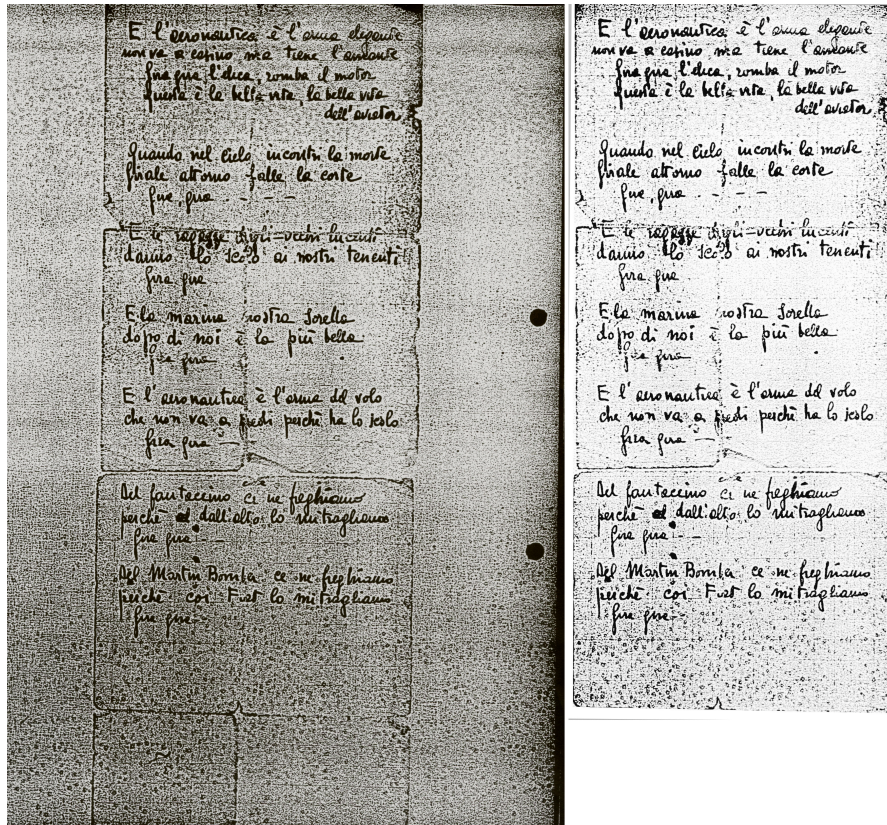 E l'aeronautica è l'arma elegante
non va a casino ma tiene l'amante
gira gira l'elica, romba il motor
questa è la bella vita, la bella vita
dell'aviator
Quando nel cielo incontri la morte
girale attorno falle la corte
gira, gira - - - -
E le ragazze dagli occhi lucenti
danno lo ai nostri tenenti
gira gira
E la marina nostra sorella
dopo di noi è la più bella
gira gira
E l'aeronautica è l'arma del volo
che non va a piedi perchè ha lo
gira gira - -
Del fantaccino ce ne freghiamo
perchè dall'alto lo mitragliamo
gira gira - -
Del Martin Bomba ce ne freghiamo
perchè coi Fiat lo mitragliamo
gira gira -
E l'aeronautica è l'arma elegante
non va a casino ma tiene l'amante
gira gira l'elica, romba il motor
questa è la bella vita, la bella vita
dell'aviator
Quando nel cielo incontri la morte
girale attorno falle la corte
gira, gira - - - -
E le ragazze dagli occhi lucenti
danno lo ai nostri tenenti
gira gira
E la marina nostra sorella
dopo di noi è la più bella
gira gira
E l'aeronautica è l'arma del volo
che non va a piedi perchè ha lo
gira gira - -
Del fantaccino ce ne freghiamo
perchè dall'alto lo mitragliamo
gira gira - -
Del Martin Bomba ce ne freghiamo
perchè coi Fiat lo mitragliamo
gira gira -